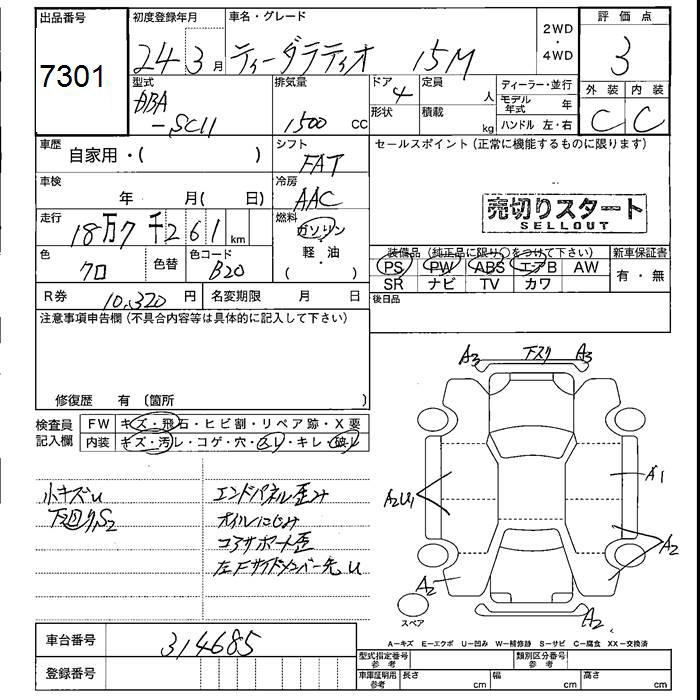 出品番号
7301
初度登録年月
24 3 月
車名・グレード
ティーダラティオ 15M
2WD
・
4WD
評価点
3
型式
DBA
-SC11
排気量
1500 CC
ドア
4
形状
定員
人
積載
kg
ディーラー・並行
モデル年式 年
ハンドル 左・右
外装 内装
C C
車歴
自家用・( )
シフト
FAT
セールスポイント(正常に機能するものに限ります)
車検
年 月( 日)
冷房
AAC
売切りスタート
SELLOUT
走行
18万7千261 km
燃料
ガソリン
軽・油
( )
色
クロ
色替
色コード
B20
装備品(純正品に限り○をつけて下さい)
PS PW ABS エアB AW
SR ナビ TV カワ
新車保証書
有・無
R券 10,320 円
名変期限 月 日
後日品
注意事項申告欄(不具合内容等は具体的に記入して下さい)
修復歴 有 〔箇所 〕
検査員
記入欄
FW キズ・飛石・ヒビ割・リペア跡・X要
内装 キズ・汚レ・コゲ・穴・スレ・キレ・破レ
小キズu
下回りS2
エンドパネル歪み
オイルにじみ
コアサポート歪
左Fサイドメンバー先u
A3 下スリ A3
A2U1
A1
A2
A2
A2
スペア
A-キズ E-エクボ U-凹み W-補修跡 S-サビ C-腐食 XX-交換済
車台番号 314685
登録番号
型式指定番号
参考
類別区分番号
参考
車庫証明用
参考
長さ cm
幅 cm
高さ cm